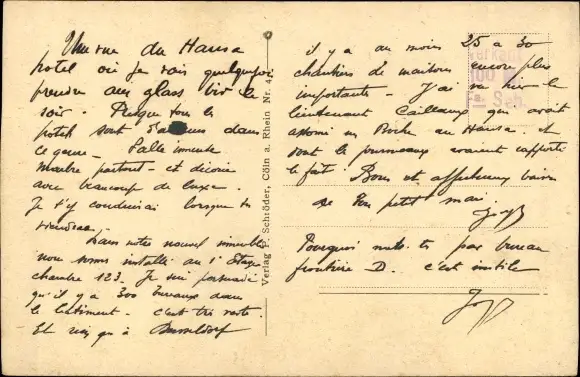 Une vue du Hansa
hotel où je vais quelquefois
prendre une glace vers le
soir. Presque tous les
hotels sont d'ailleurs dans
ce genre - Salle immense
Marbre partout - et décorée
avec beaucoup de luxe.
Je t'y conduirai lorsque tu
viendras.
Dans notre nouvel immeuble
nous sommes installé au 1° Etage
chambre 123. Je suis persuadé
qu'il y a 300 bureaux dans
le batiment - c'est très vaste.
Et rien qu'à Dusseldorf
il y a au moins 25 a 30
chantiers de maisons encore plus
importants - J'ai vu hier le
lieutenant Caillaux qui avait
assommé un Boche au Hansa et
dont les journeaux avaient rapporté
le fait. Bons et affectueux baisers
de ton petit mari.
Pourquoi mets-tu par bureau
frontière - D. c'est inutile
Verlag P. Schröder, Cöln a. Rhein Nr. 4
verkauf
100
Fa. Seb.